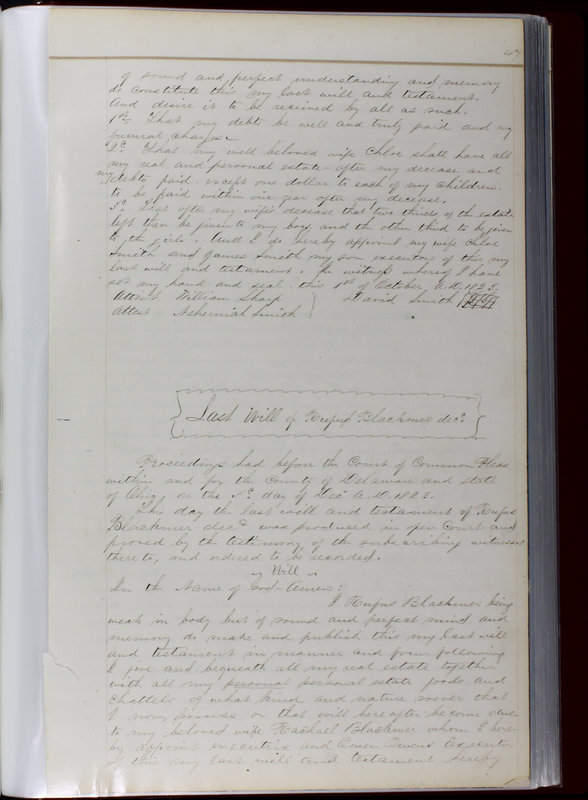 47
of sound and perfect understanding and memory
do constitute this my last will and testament.
And desire it to be received by all as such.
1st That my debts be well and truly paid and my
funeral charges
2d That my well beloved wife Chloe shall have all
my real and personal estate after my decease and
my debts paid except one dollar to each of my children
to be paid within one year after my decease.
3d That after my wife's decease that two thirds of the estate
left then be given to my boys and the other third to be given
to the girls. And I do hereby appoint my wife Chloe
Smith and James Smith my son executors of this my
last will and testament. In witness whereof I have
set my hand and seal this 1st of October, A.D. 1823.
Attest William Sharp David Smith
Attest Nehemiah Smith
Last Will of Rufus Blackmer decd.
Proceedings had before the Court of Common Pleas
within and for the County of Delaware and State
of Ohio, on the day of Dec A.D. 1823.
This day the last will and testament of Rufus
Blackmer decd was produced in open Court and
proved by the testimony of the subscribing witnesses
thereto, and ordered to be recorded.
Will
In the Name of God Amen;
I Rufus Blackmer being
weak in body but of sound and perfect mind and
memory do make and publish this my last will
and testament in manner and form following
I give and bequeath all my real estate together
with all my personal personal estate goods and
chattels of what kind and nature soever that
I now possess or that will hereafter become due
to my beloved wife Rachael Blackmer whom I here-
by appoint executrix and Executor
of this my last will and testament hereby